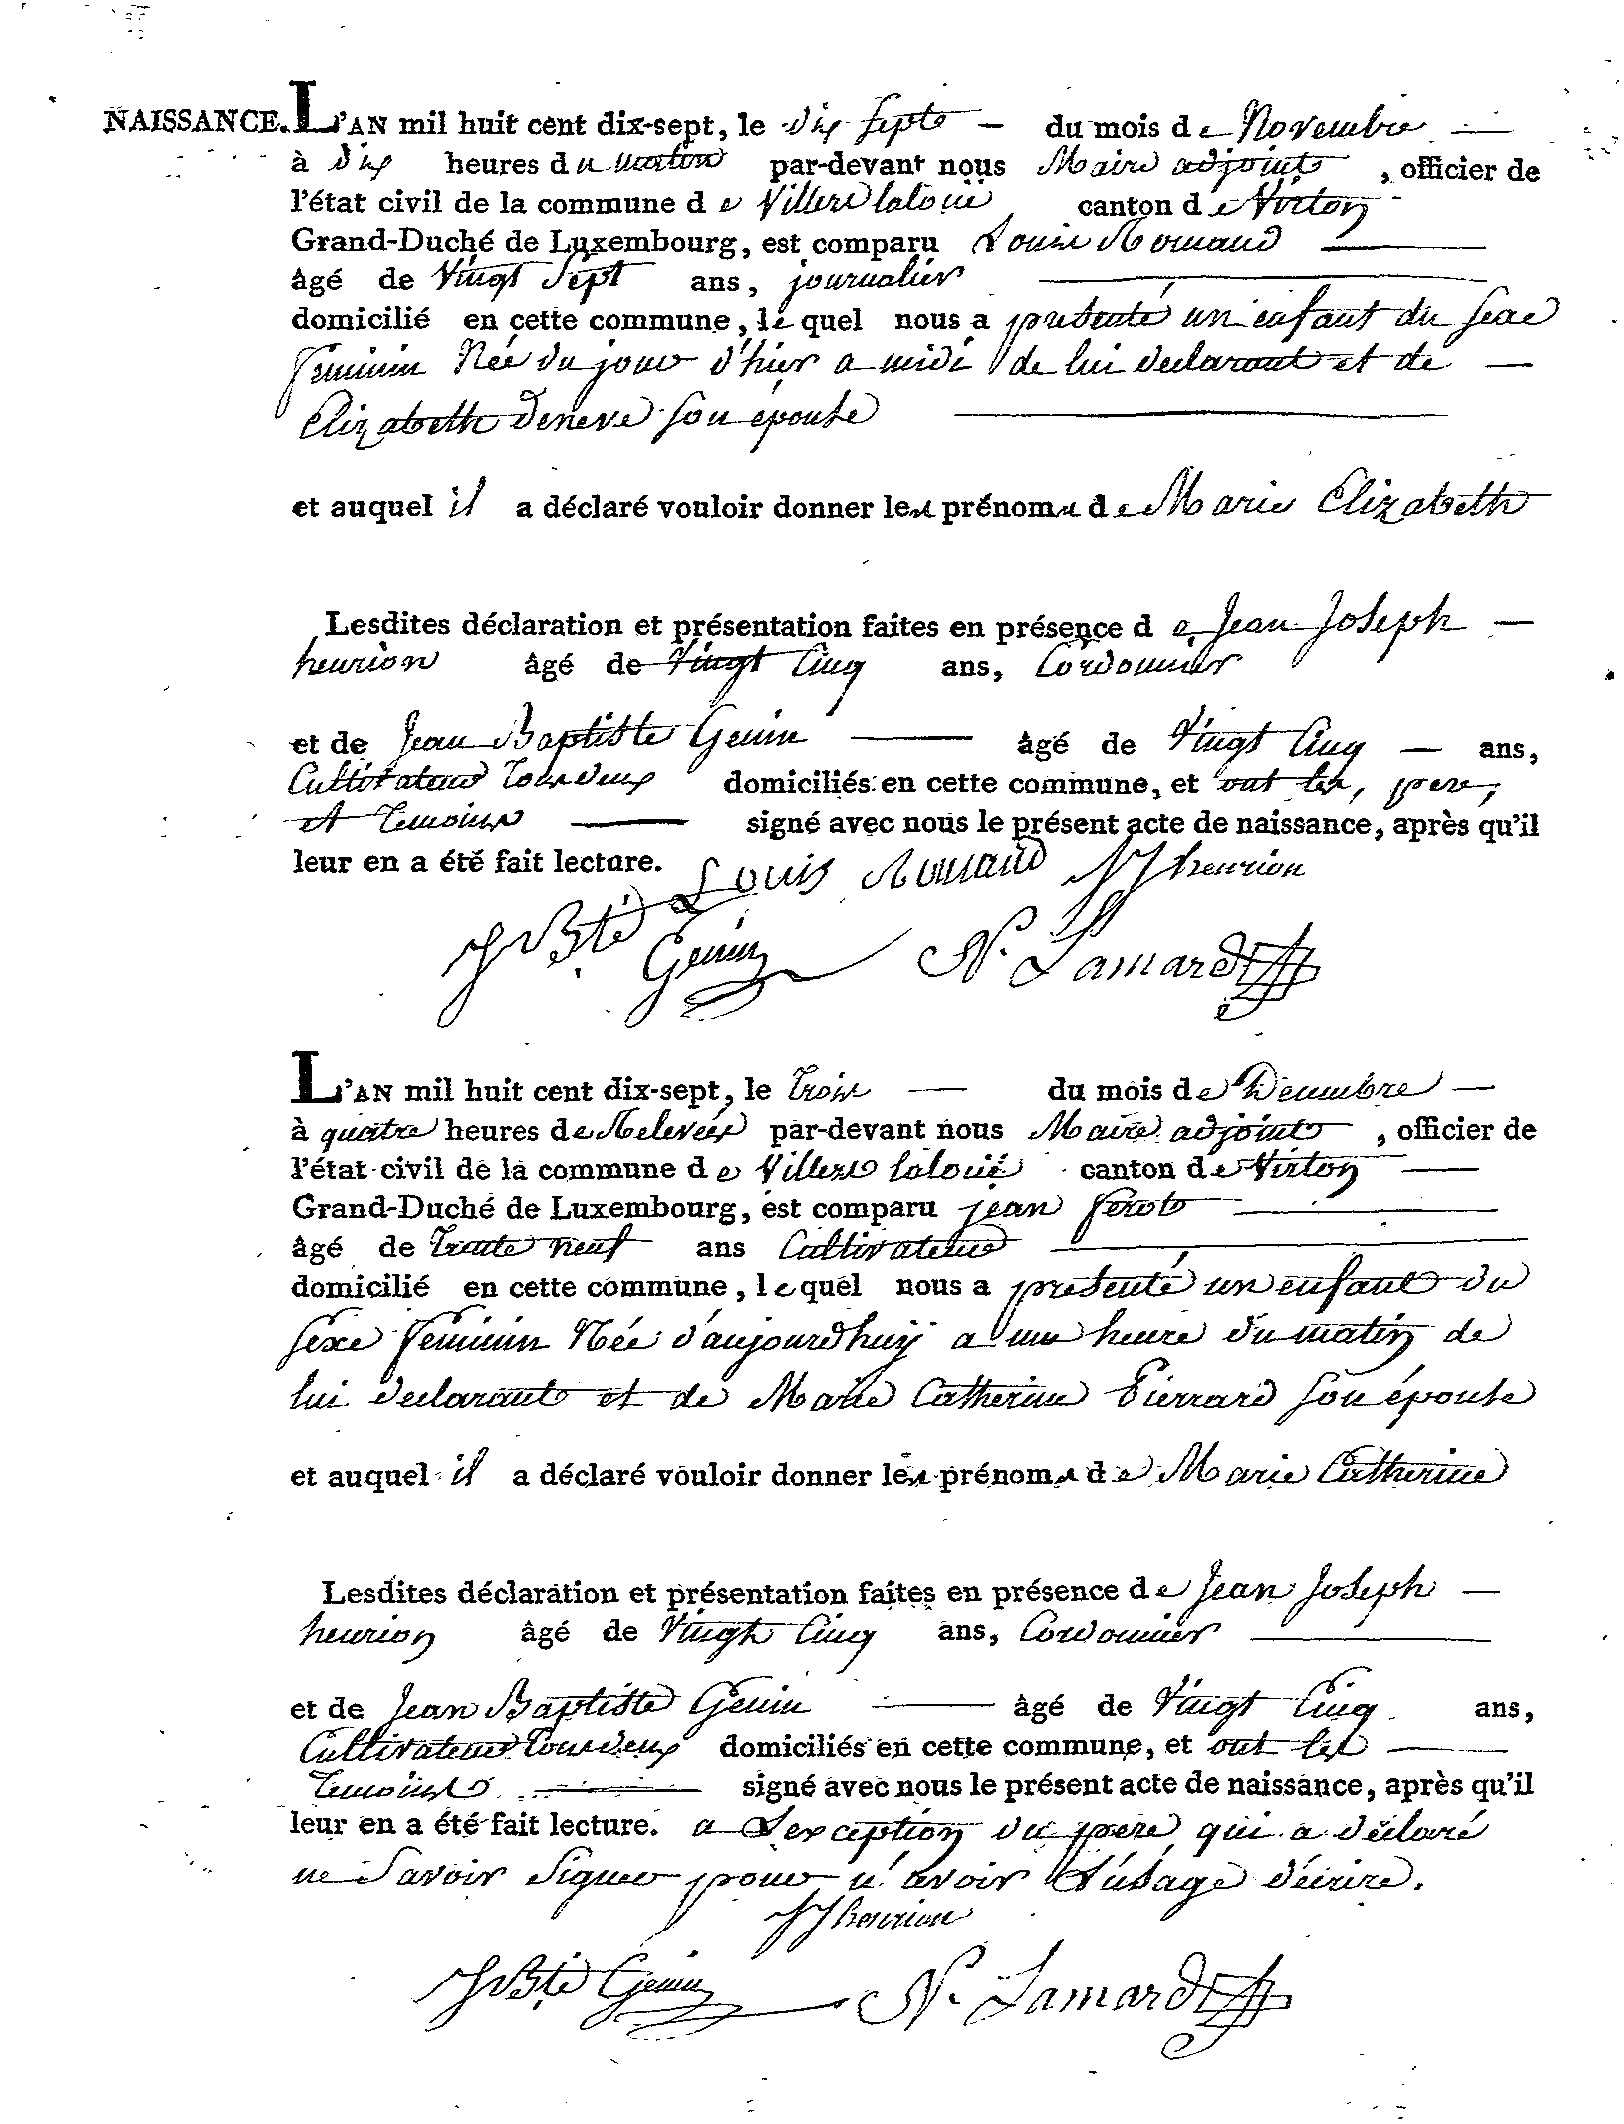 NAISSANCE. L'AN mil huit cent dix-sept, le dix sept – du mois de Novembre —
à dix heures du matin par-devant nous Maire adjoint , officier de
l'état civil de la commune de Villers laloüé canton de Virton
Grand-Duché de Luxembourg, est comparu Louis Romand —
âgé de Vingt Sept ans, journalier —
domicilié en cette commune, lequel nous a présenté un enfant du sexe
feminin Née du jour d'hier a midi de lui declarant et de —
Elizabeth Deneve son epouse —
et auquel il a déclaré vouloir donner les prénoms de Marie Elizabeth
Lesdites déclaration et présentation faites en présence de Jean Joseph —
henrion âgé de Vingt Cinq ans, Cordonnier
et de Jean Baptiste Genin — âgé de Vingt Cinq — ans,
Cultivateur Tous deux domiciliés en cette commune, et ont les, pere,
et Temoins — signé avec nous le présent acte de naissance, après qu'il
leur en a été fait lecture. Louis Romand JJ henrion
J Bte Genin N. Lamard
L'AN mil huit cent dix-sept, le Trois — du mois de Decembre —
à quatre heures de Relevée par-devant nous Maire adjoint , officier de
l'état civil de la commune de Villers laloüé canton de Virton —
Grand-Duché de Luxembourg, est comparu jean ferot —
âgé de Trente neuf ans Cultivateur —
domicilié en cette commune, lequel nous a presenté un enfant du
sexe feminin Née d'aujourdhuy a une heure du matin de
lui declarant et de Marie Catherine Pierrard son épouse
et auquel il a déclaré vouloir donner les prénoms de Marie Catherine
Lesdites déclaration et présentation faites en présence de Jean Joseph —
henrion âgé de Vingt Cinq ans, Cordonnier —
et de Jean Baptiste Genin — âgé de Vingt Cinq ans,
Cultivateur Tous deux domiciliés en cette commune, et ont les —
Temoins — signé avec nous le présent acte de naissance, après qu'il
leur en a été fait lecture. a L'exception du pere qui a declaré
ne Savoir Signer pour n'avoir L'usage d'écrire.
JJ henrion
J Bte Genin N. Lamard